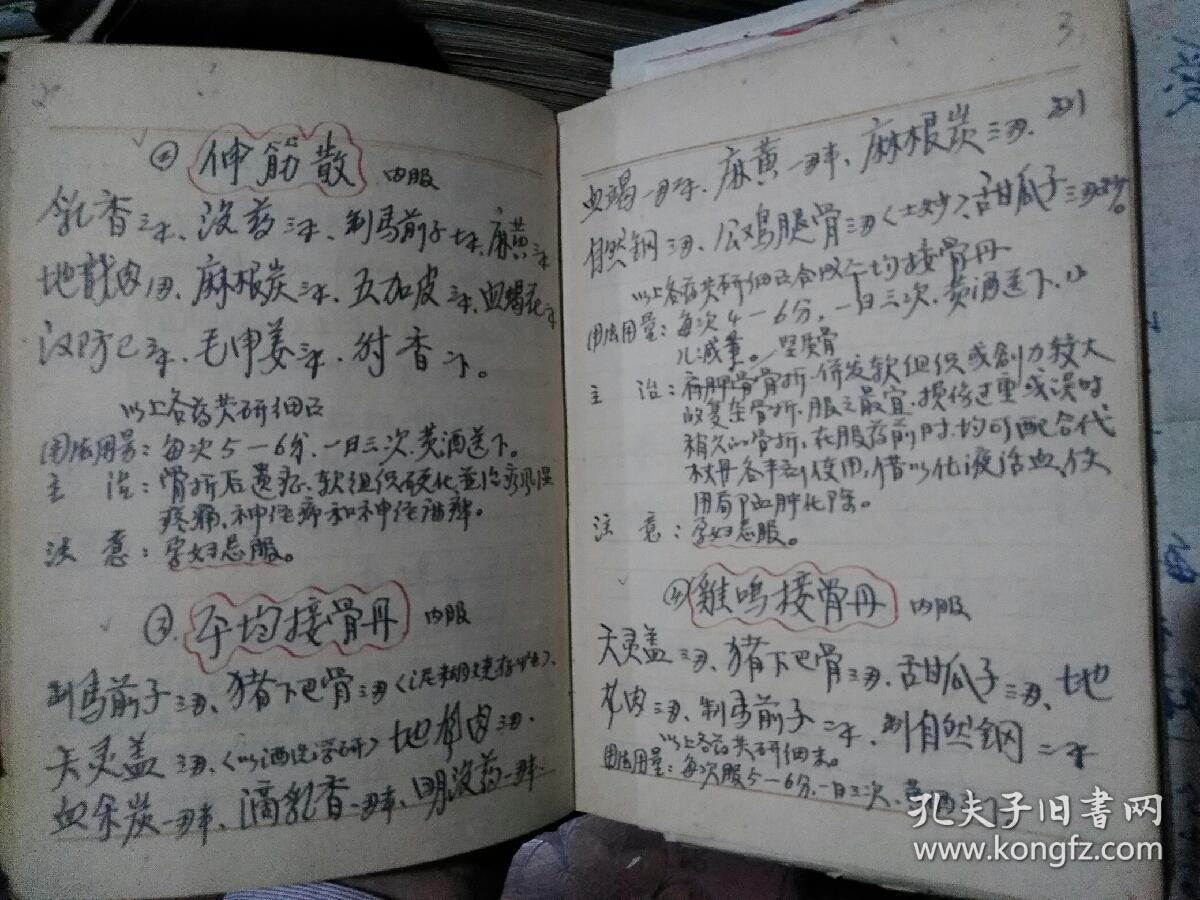 2
② 伸筋散 内服
乳香三卜、没药三卜、制马前子七卜、麻黄三卜
地鳖肉1两、麻根炭三卜、五加皮三卜、血竭花三卜
汉防己三卜、毛申姜三卜、射香二卜。
以上各药共研细面
用法用量：每次5—6分，一日三次，黄酒送下。
主 治：骨折后遗症、软组织硬化并治疯湿
疼痛、神经痛和神经麻痹。
注 意：孕妇忌服。
③ 平均接骨丹 内服
制马前子三两、猪下巴骨三两
天灵盖三两、地 肉三两、
血余炭一两半、滴乳香一两半、明没药一两半、
3
血竭一两半、麻黄一两半、麻根炭三两、制
自然铜三两、公鸡腿骨三两〈土炒〉、甜瓜子三两炒。
以上各药共研细面合成平均接骨丹
用法用量：每次4—6分，一日三次，黄酒送下，小
儿减量。
主 治：骨折，併发软组织或创力较大
的复杂骨折，服之最宜，损伤过重或误时
稍久的骨折，在服药前时，均可配合代
杖丹各半剂使用，借以化液活血，使
用局部血肿化除。
注 意：孕妇忌服。
④ 雞鸣接骨丹 内服
天灵盖三两、猪下巴骨三两、甜瓜子三两、地
肉三两、制马前子二卜、制自然铜二卜
以上各药共研细末。
用法用量：每次服5—6分，一日三次，黄酒送下
孔夫子旧书网
www.kongfz.com